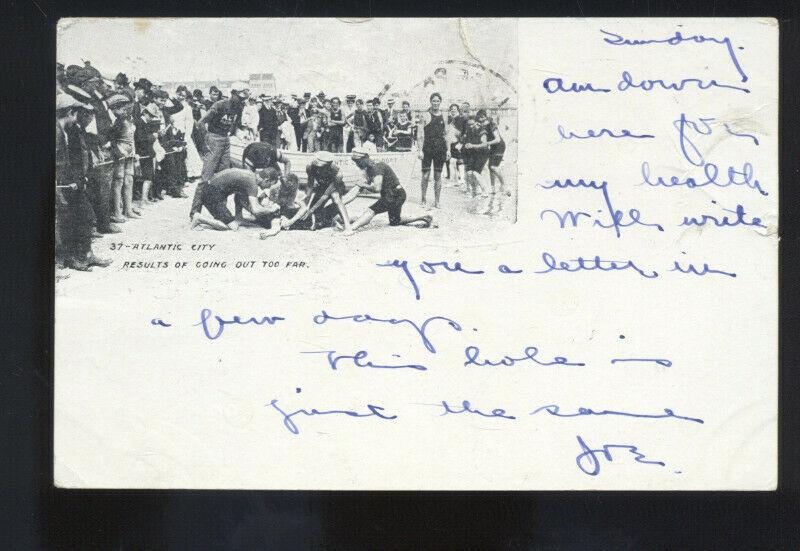 Sunday.
am down
here for
my health
Will write
you a letter in
a few days.
This hole is
just the same
Joe.
37-ATLANTIC CITY
RESULTS OF GOING OUT TOO FAR.